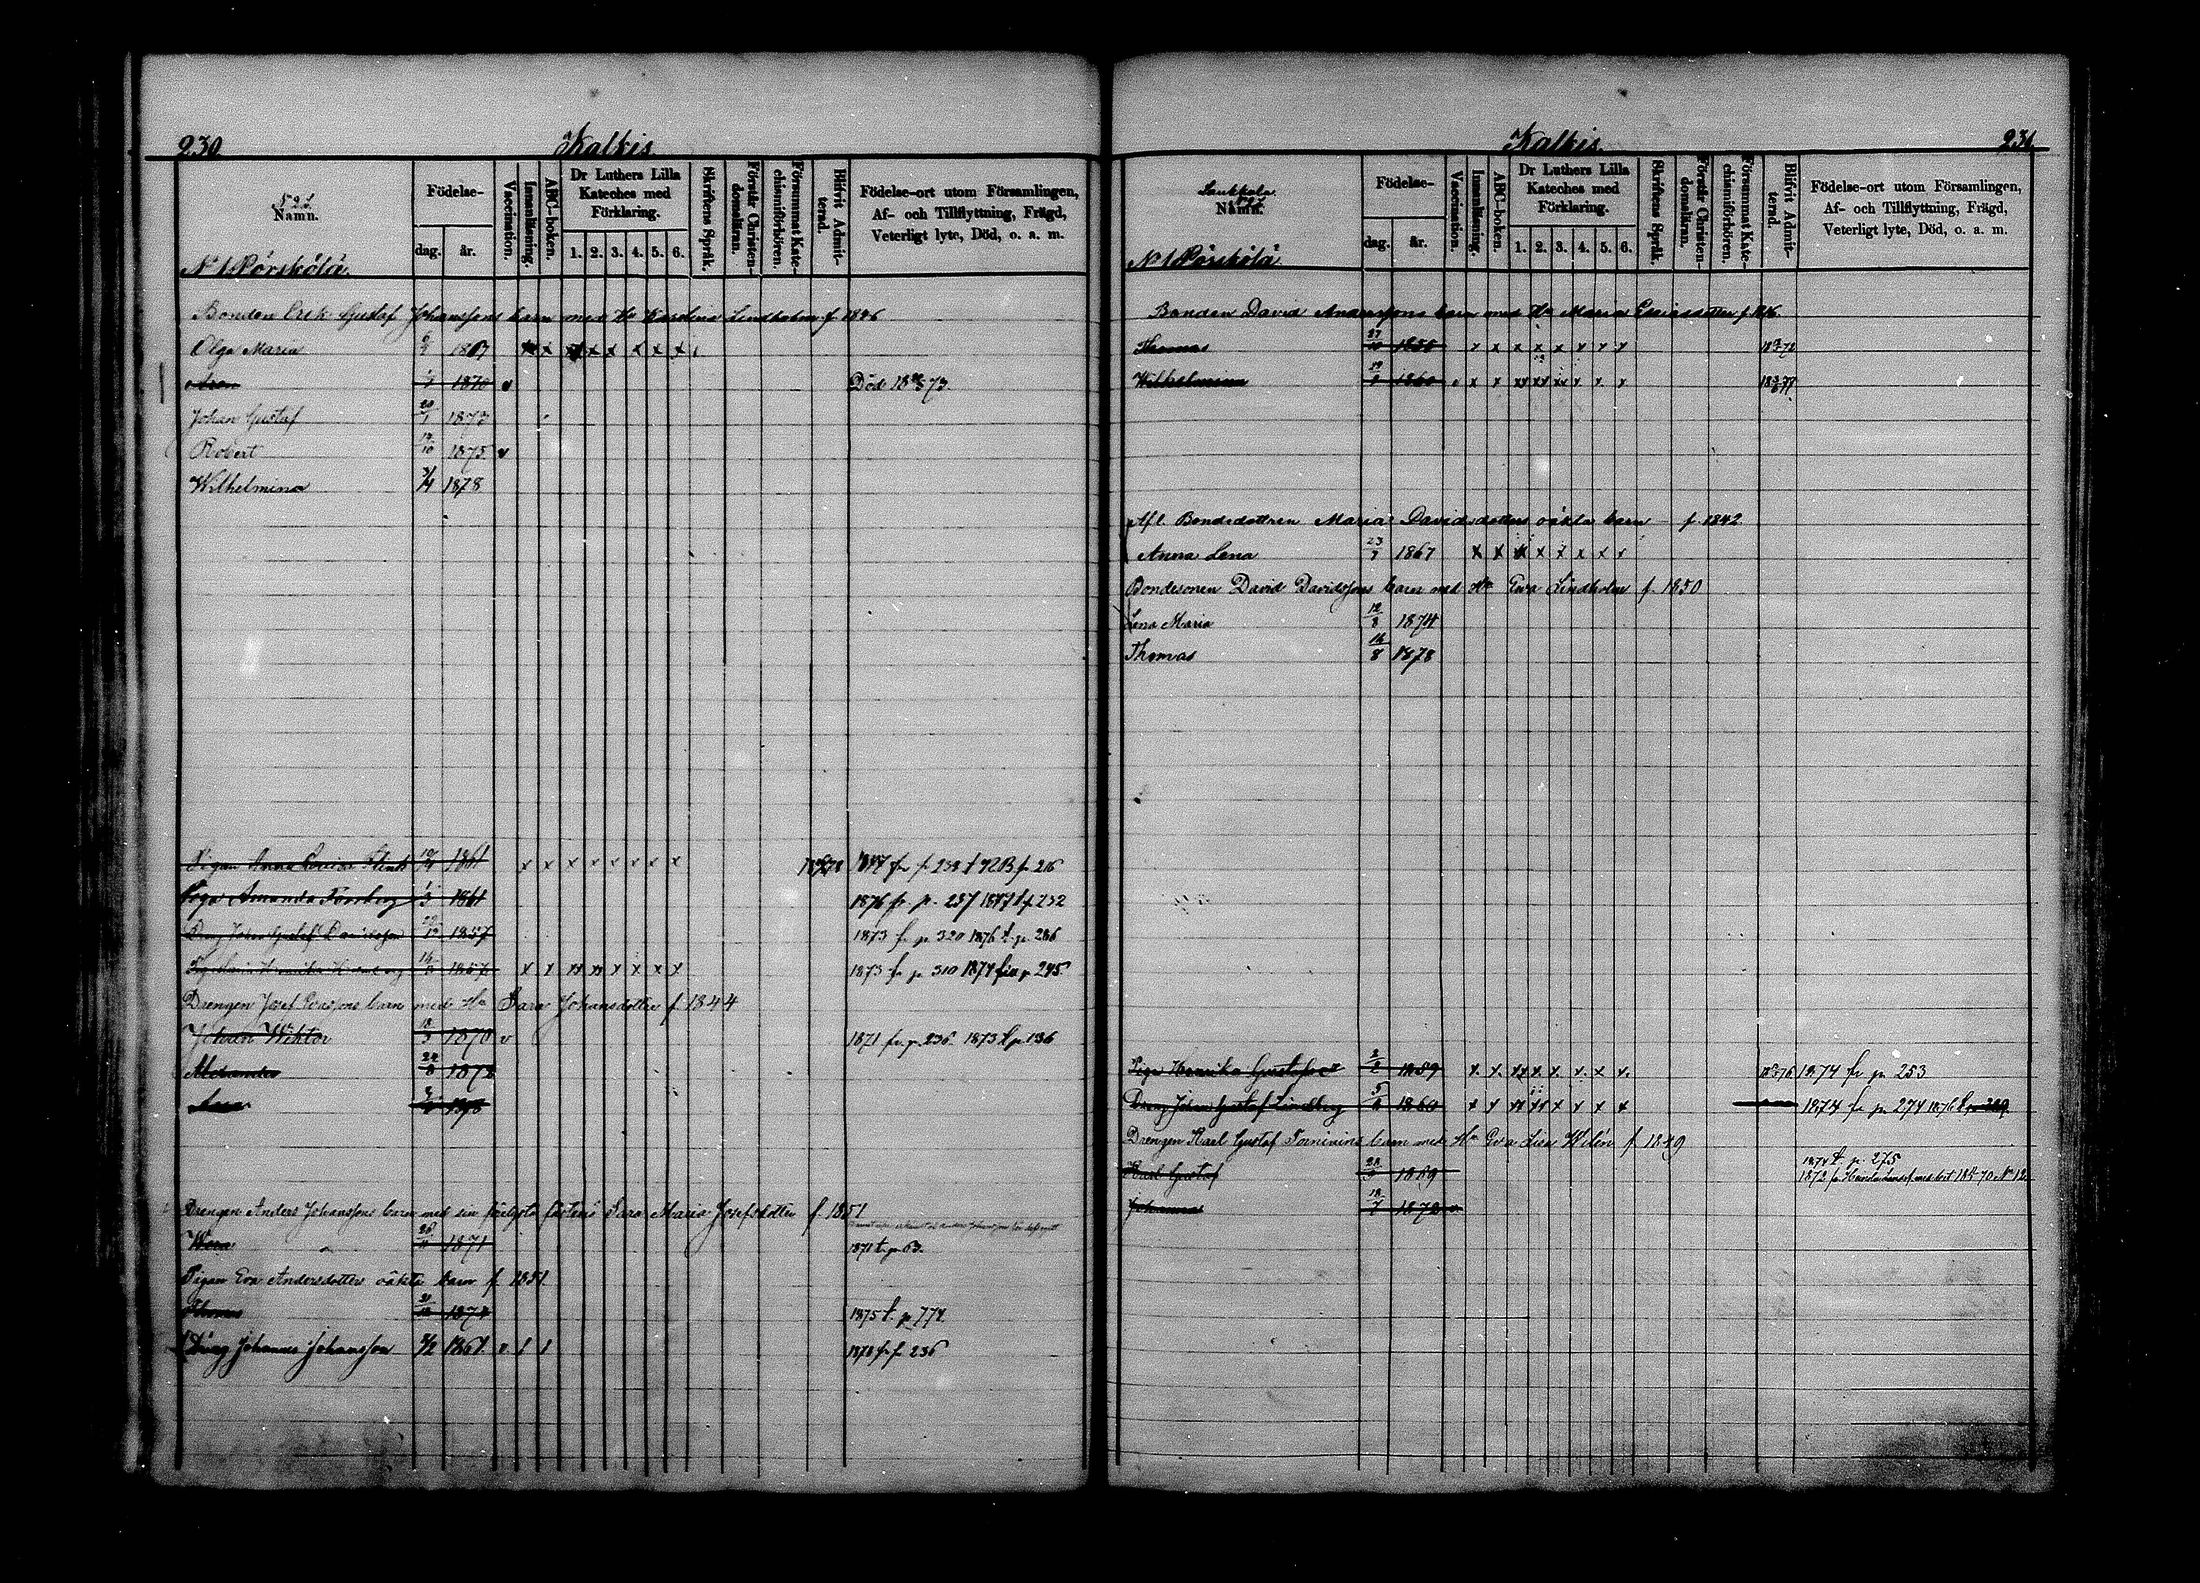 230
Kalkis
Namn.
Födelse-
dag.
år.
Vaccination.
Innanläsning.
ABC-boken.
Dr Luthers Lilla
Kateches med
Förklaring.
1. 2. 3. 4. 5. 6.
Skriftens Språk.
Förstår Christen-
domsläran.
Försummat Kate-
chismiförhören.
Blifvit Admit-
terad.
Födelse-ort utom Församlingen,
Af- och Tillflyttning, Frägd,
Veterligt lyte, Död, o. a. m.
No 1 Pörskölä
Bonden Erik Gustaf Johanssons barn med Hu Karolina Lindholm f. 1846
Olga Maria 1867 x x x x x x x
1870 v Död 1873
Johan Gustaf 20/1 1873
Robert 1875 v
Wilhelmina 3/4 1878
Pigan Anna Lovisa 1861 x x x x x x x x 1877 fr p 238 t 72B p 216
Piga Amanda Forsberg 1/3 1861 1876 fr p. 237 1877 t p 232
Dräng Johan Gustaf Davidsson 1857 1873 fr p 320 1876 t p 286
1857 x x x x x x x x 1873 fr p 310 1874 p 245
Drengen Josef Esaiassons barn med Hu Sara Johansdotter f. 1844
Johan Wiktor 1870 v 1871 fr p. 236. 1873 t p 136
Alexander 1872
Drengen Anders Johanssons barn med sin fästeqvinna Sara Maria Josefsdotter f 1851
1871 1871 t p 63.
Pigan Eva Andersdotters oäkta barn f. 1851
Thomas 1874 1875 t. p 774
Dräng Johannes Johansson 2/2 1861 v 1 1 1878 fr p 236
231
Kalkis
Sankkola
Namn.
Födelse-
dag.
år.
Vaccination.
Innanläsning.
ABC-boken.
Dr Luthers Lilla
Kateches med
Förklaring.
1. 2. 3. 4. 5. 6.
Skriftens Språk.
Förstår Christen-
domsläran.
Försummat Kate-
chismiförhören.
Blifvit Admit-
terad.
Födelse-ort utom Församlingen,
Af- och Tillflyttning, Frägd,
Veterligt lyte, Död, o. a. m.
No 1 Pörskölä
Bonden David Anderssons barn med Hu Maria Esaiasdotter f. 1816.
Thomas 27/10 x x x x x x x x
Wilhelmina 1860 x x xx xx xx x x x
Afl. Bondedottren Maria Davidsdotters oäkta barn f. 1842
Anna Lena 1867 x x x x x x x x
Bondesonen David Davidssons barn med Hu Eva Lindholm f. 1850
Lena Maria 12/8 1874
Thomas 16/8 1878
Piga Henrika Gustafsdr 2/2 1859 x x xx x x x x x 1874 fr p 253
Dräng Johan Gustaf Lindberg 1860 x x xx xx x x x x 1874 fr p 274 1876 t p 309
Drengen Karl Gustaf Forninins barn med Hu Eva Lisa Wilén f 1849
1874 t. p. 275
Karl Gustaf 1869
Johannes 18/7 1872 v